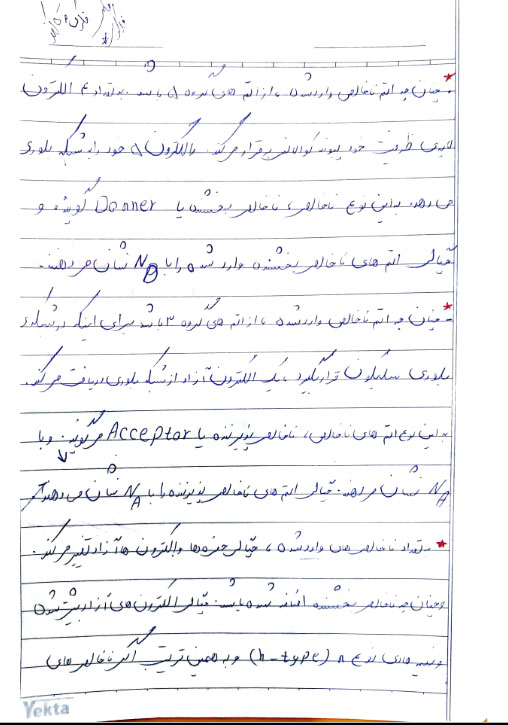 * چنان چه اتم ناخالصی وارد شده، از اتم های گروه ۵ باشد. به تعداد ۴ الکترون
لایه ی ظرفیت خود پیوند کوالانسی برقرار می کند. و الکترون ۵ خود را به شبکه بلوری
می دهد. به این نوع ناخالصی، ناخالصی بخشنده یا Donner گویند. و
چگالی اتم های ناخالصی بخشنده وارد شده را با ND نشان می دهند.
* چنان چه اتم ناخالصی وارد شده، از اتم های گروه ۳ باشد برای اینکه در شبکه ی
بلوری سیلیکون قرار بگیرد، یک الکترون آزاد از شبکه بلوری دریافت می کند.
به این نوع اتم های ناخالصی، ناخالصی پذیرنده یا Acceptor می گویند. و با
NA نشان می دهد. چگالی اتم های ناخالصی پذیرنده را با NA نشان می دهند
* تعداد ناخالصی های وارد شده، چگالی حفره ها و الکترون های آزاد تغییر می کند.
و چنان چه ناخالصی بخشنده اضافه شده باشد. چگالی الکترون های آزاد بیشتر شده
و نیمه هادی نوع n (n-type) و به همین ترتیب اگر ناخالصی های
Yekta